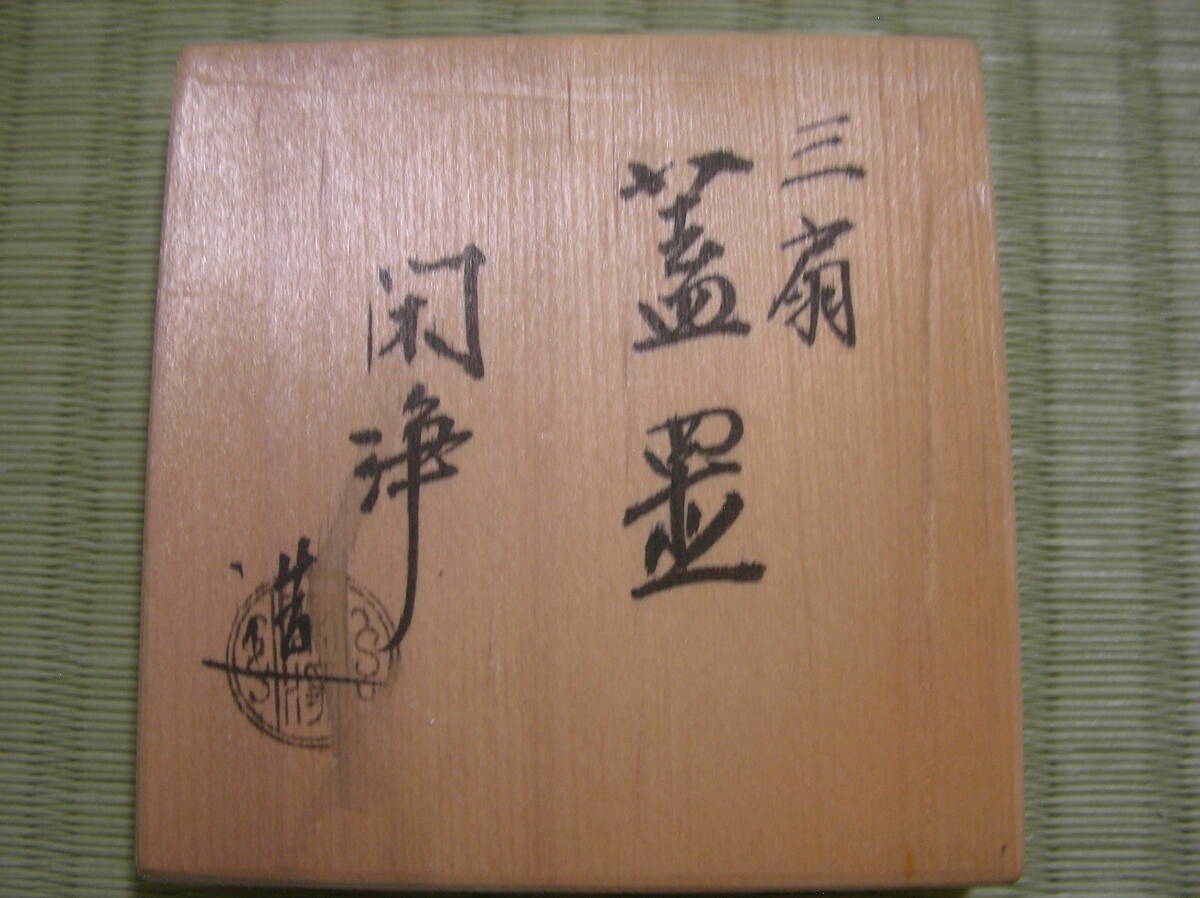 三扇
蓋置
閑浄
造